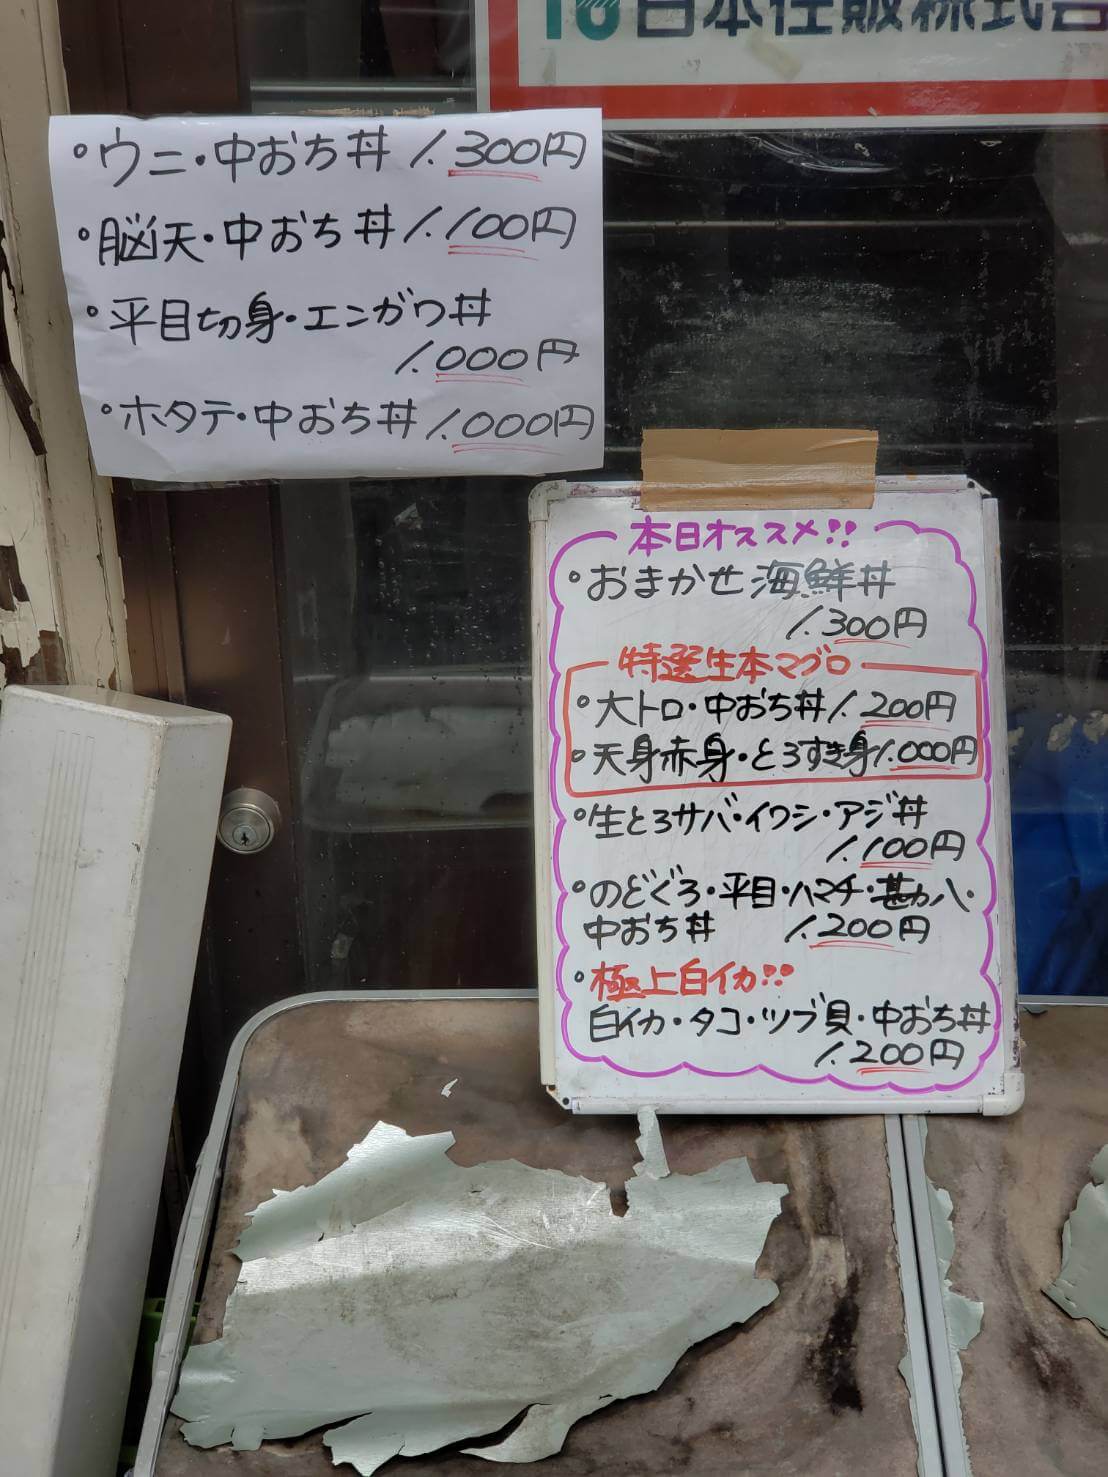 日本住販株式会
◦ウニ・中おち丼 1.300円
◦脳天・中おち丼 1.100円
◦平目切身・エンガワ丼
1.000円
◦ホタテ・中おち丼 1.000円
本日オススメ!!
◦おまかせ海鮮丼
1.300円
特選生本マグロ
◦大トロ・中おち丼 1.200円
◦天身赤身・とろすき身 1.000円
◦生とろサバ・イワシ・アジ丼
1.100円
◦のどぐろ・平目・ハマチ・勘八・
中おち丼 1.200円
◦極上白イカ!!
白イカ・タコ・ツブ貝・中おち丼
1.200円